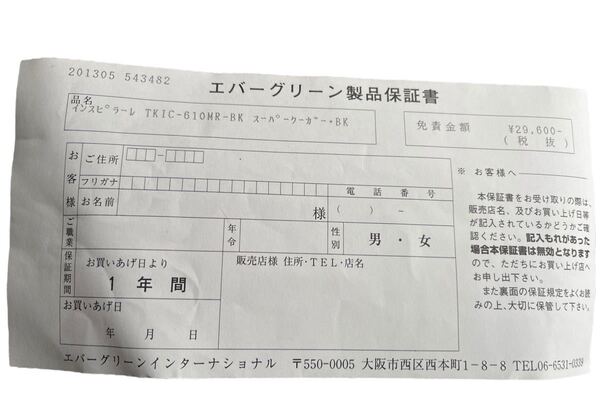 201305 543482
エバーグリーン製品保証書
品名
インスピラーレ TKIC-610MR-BK スーパークーガー・BK
免責金額 ¥29,600-
(税抜)
お客様
ご住所
フリガナ
電話番号
お名前 様 ( ) -
ご職業
年令
性別
男・女
保証期間
お買いあげ日より
1年間
お買いあげ日
年 月 日
販売店様 住所・TEL・店名
※ お客様へ
本保証書をお受け取りの際は、
販売店名、及びお買い上げ日等
が記入されているかどうかご確
認ください。記入もれがあった
場合本保証書は無効となります
ので、ただちにお買い上げ店へ
お申し出下さい。
また裏面の保証規定をよくお読
みの上、大切に保管して下さい。
エバーグリーンインターナショナル 〒550-0005 大阪市西区西本町1-8-8 TEL06-6531-0339